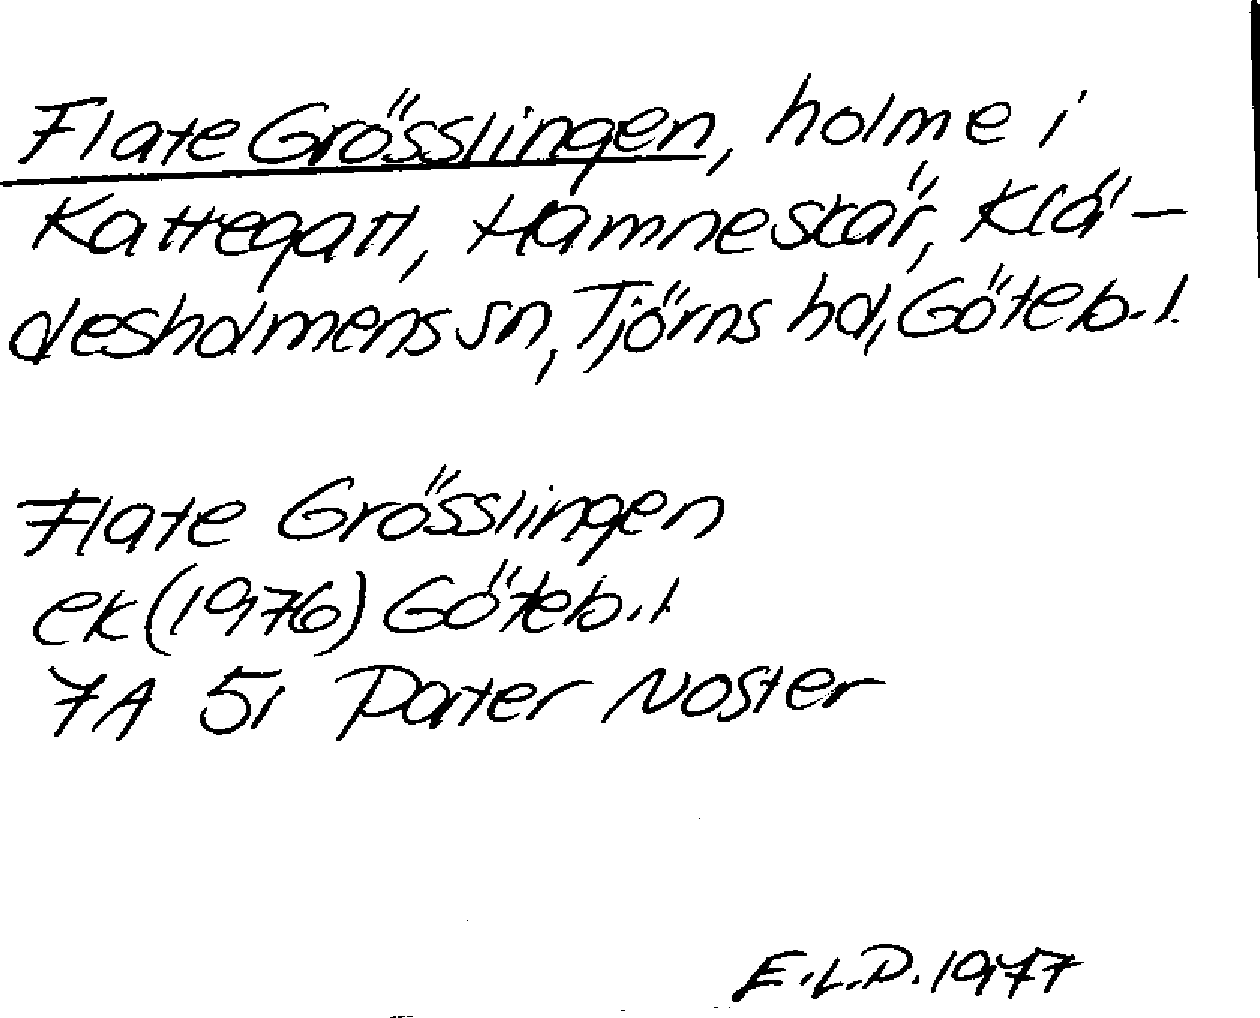 Flate Grösslingen, holme i
Kattegatt, Hamneskär, Klä-
desholmens sn, Tjörns hd, Göteb.l.
Flate Grösslingen
ek (1976) Göteb.l
7A 5i Pater Noster
E.L.P. 1977